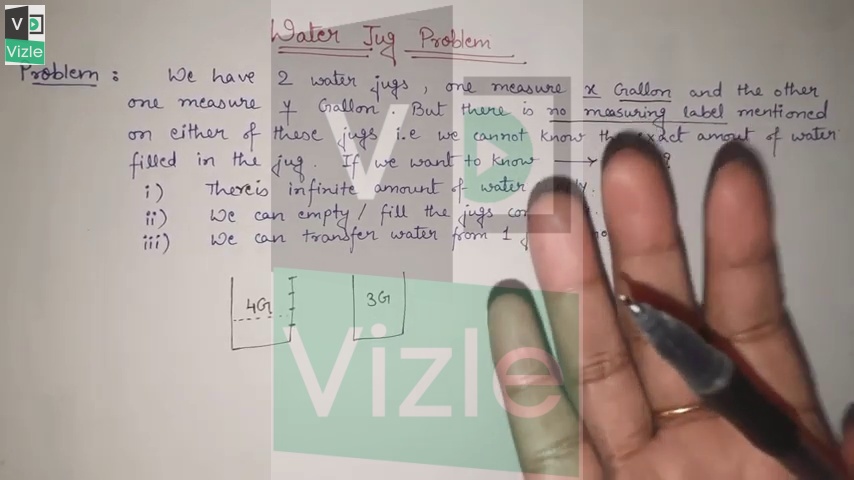 V
Vizle
Water Jug Problem
Problem : We have 2 water jugs, one measure x Gallon and the other
one measure y Gallon. But there is no measuring label mentioned
on either of these jugs i.e we cannot know the exact amout of water
filled in the jug. If we want to know → ?
i) There is infinite amount of water
ii) We can empty / fill the jugs
iii) We can transfer water from 1
4G 3G
V
Vizle